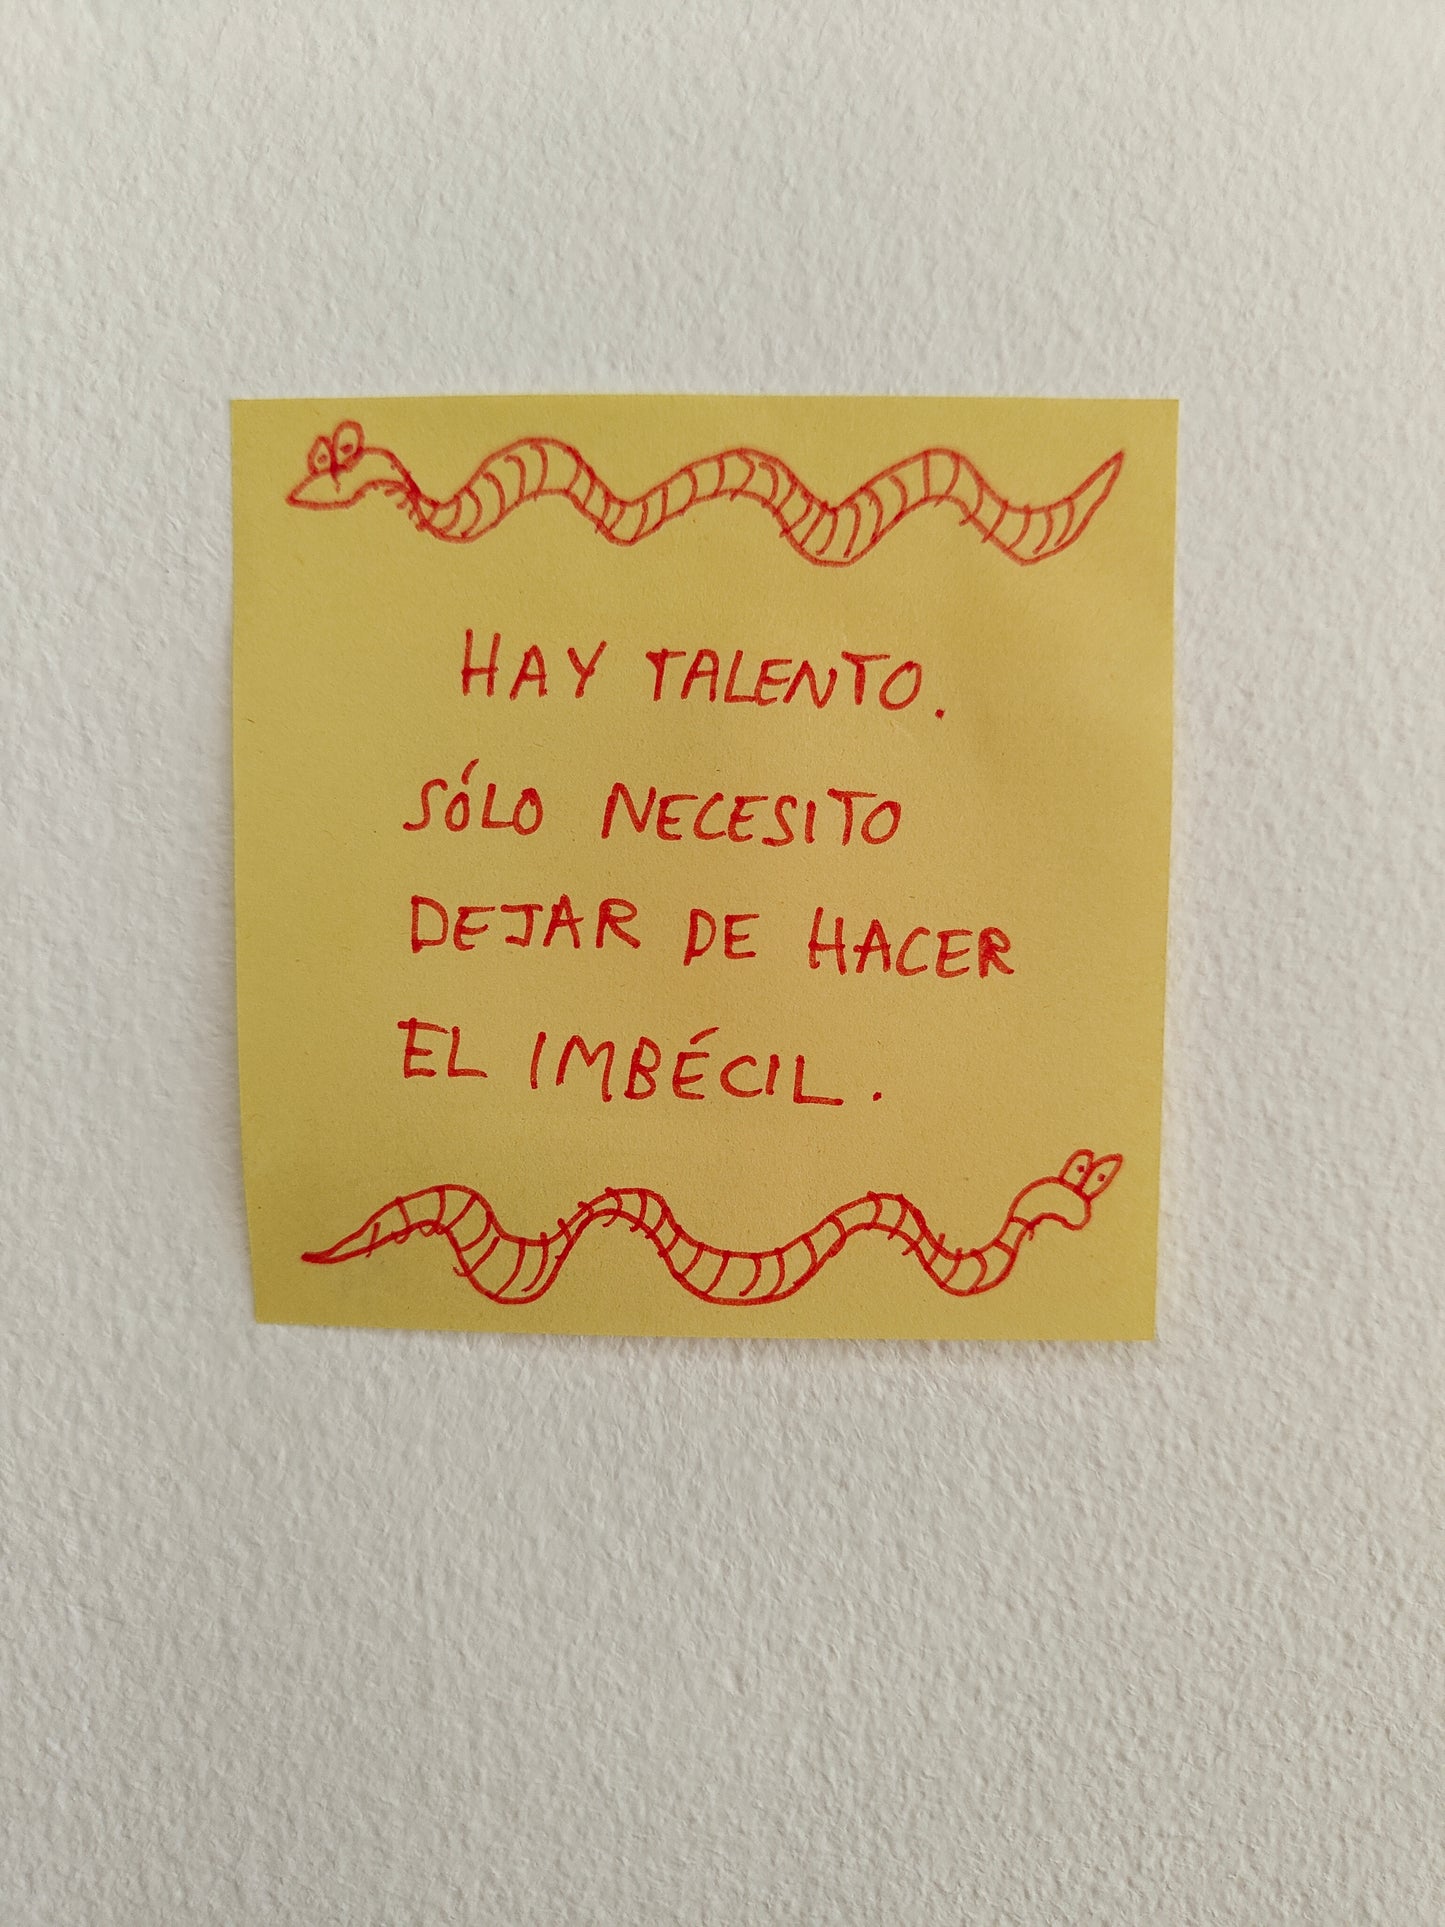 HAY TALENTO.
SÓLO NECESITO
DEJAR DE HACER
EL IMBÉCIL.